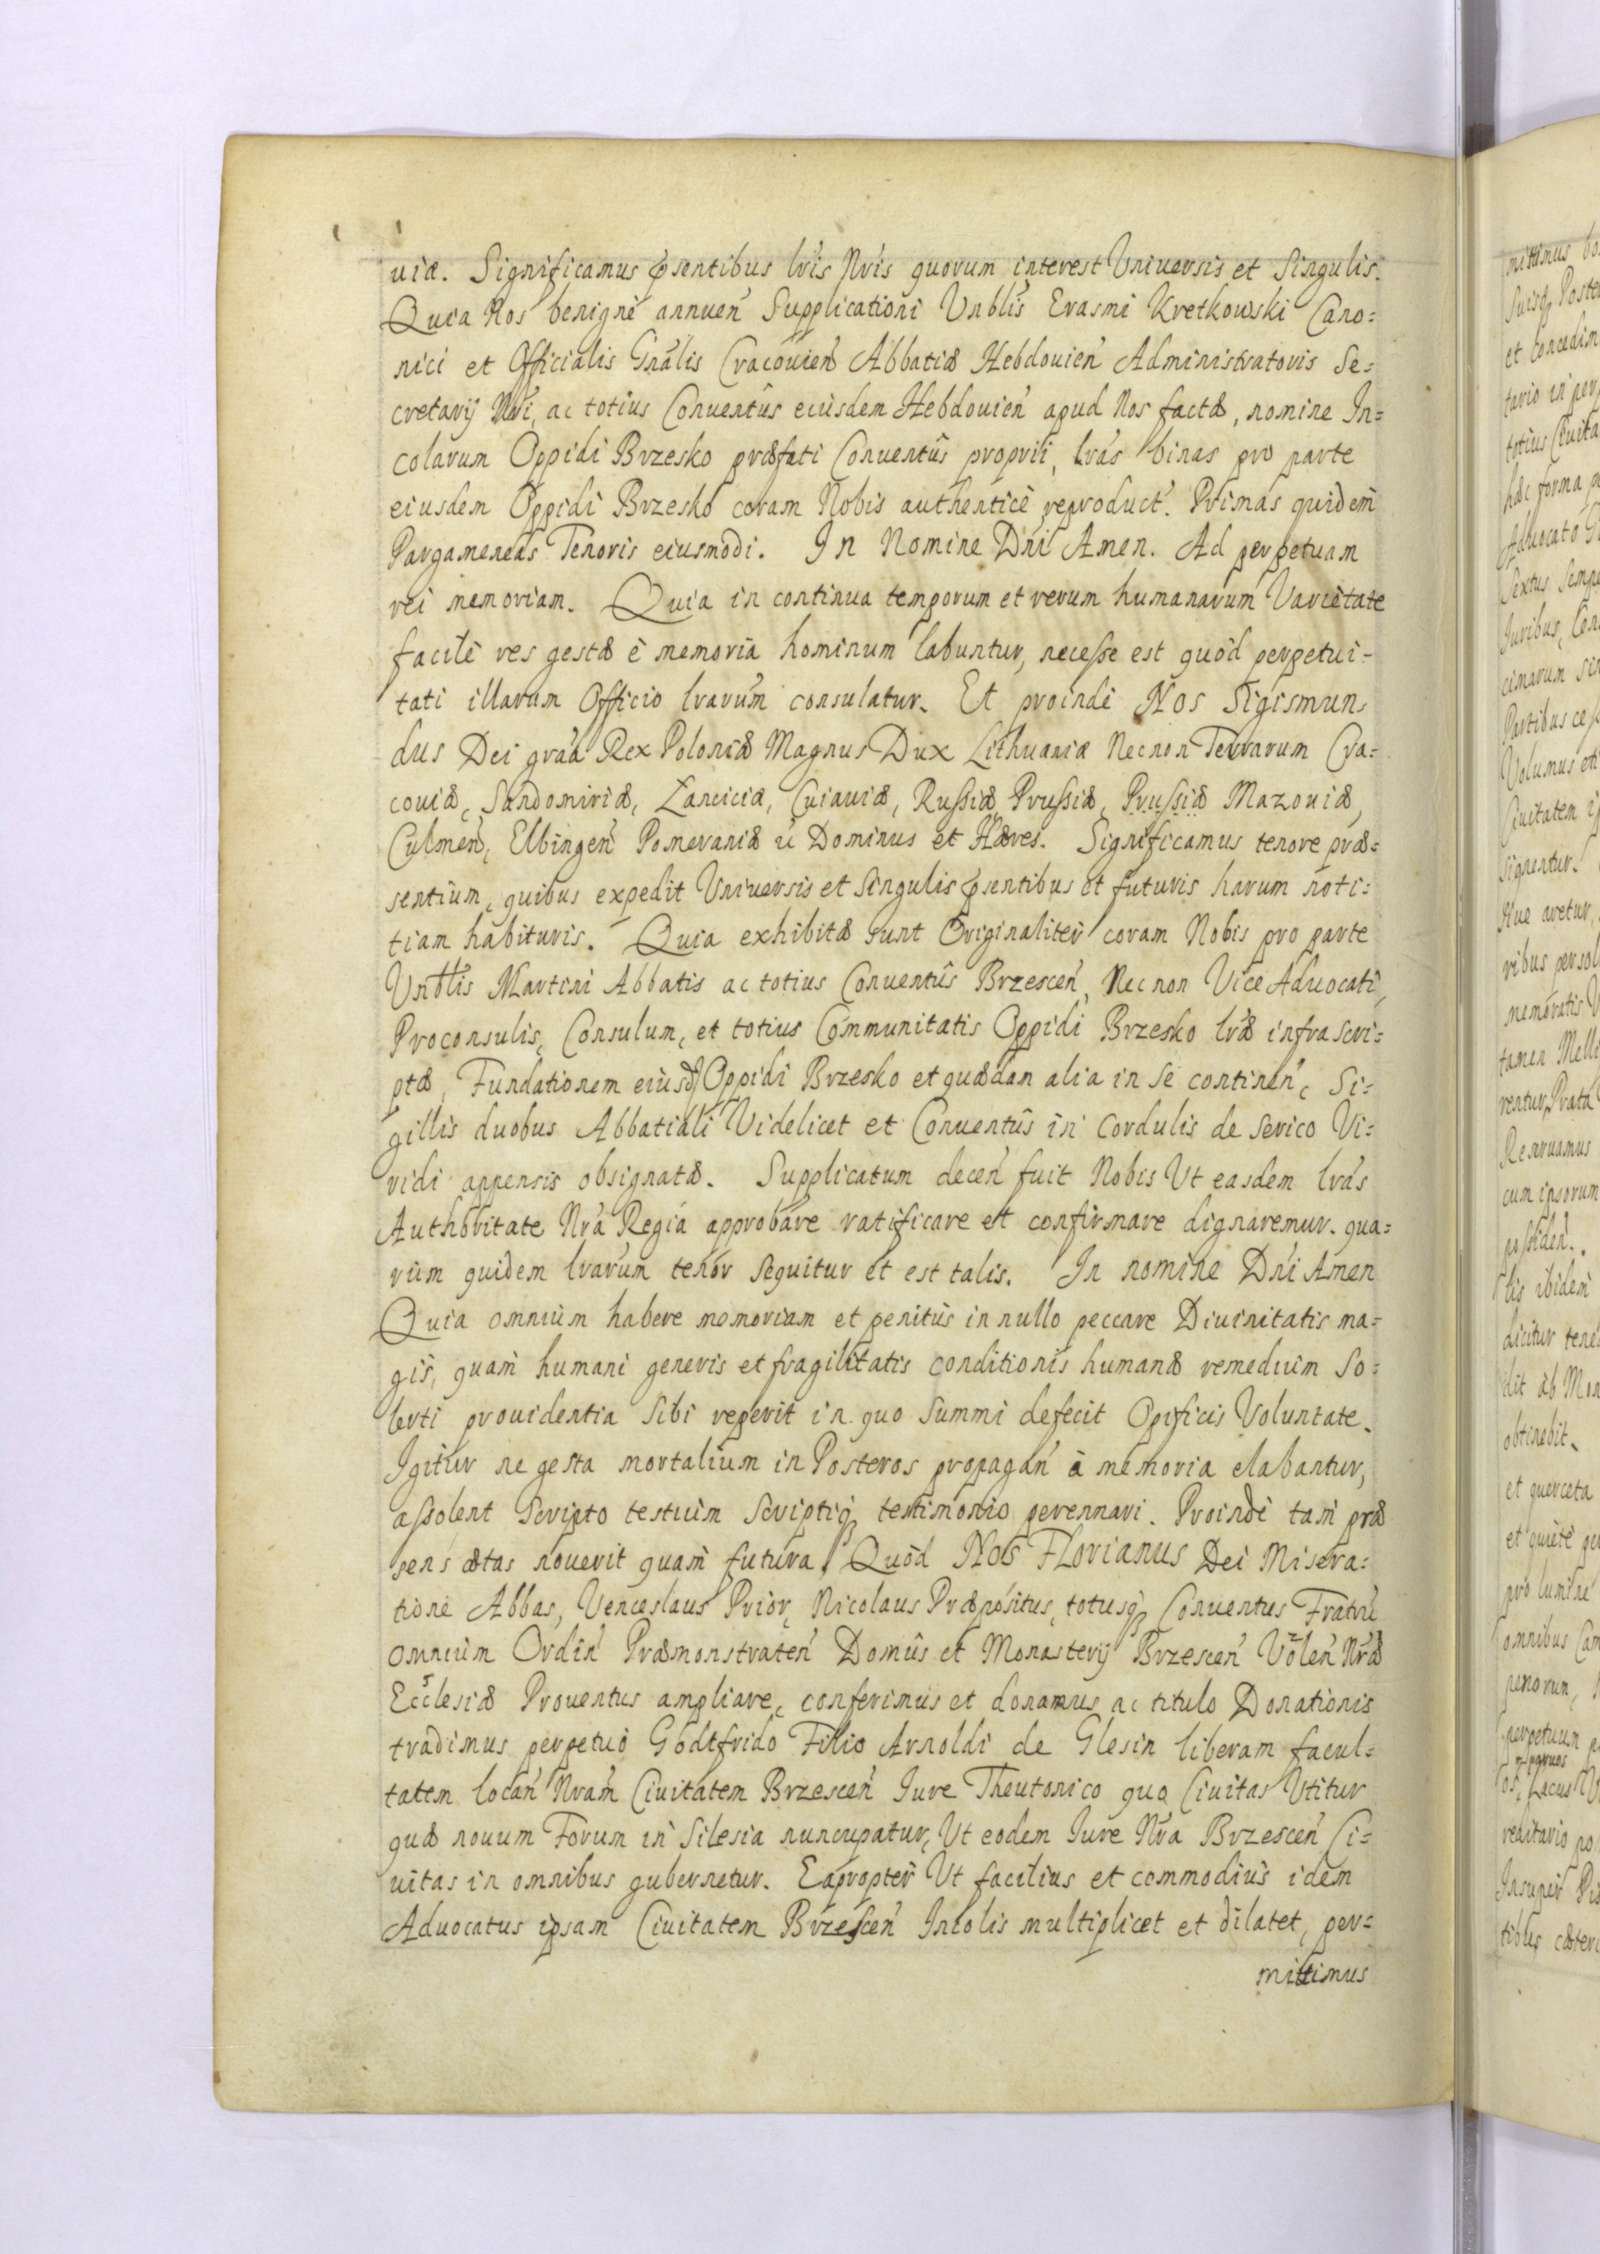 uiæ. Significamus pñsentibus lr̃is Nr̃is quorum interest Vniuersis et Singulis.
Quia Nos benignè annuen̄ Supplicationi Vnblis̃ Erasmi Kretkowski Cano=
nici et Officialis Gñalis Cracouien̄ Abbatiæ Hebdouien̄ Administratoris Se=
cretarij Nr̃i, ac totius Conuentûs eiusdem Hebdouien̄ apud Nos factæ, nomine In=
colarum Oppidi Brzesko præfati Conuentûs proprii, lr̃as binas pro parte
eiusdem Oppidi Brzesko coram Nobis authenticè reproduct̃. Primas quidem
Pargameneas Tenoris eiusmodi. In Nomine Dñi Amen. Ad perpetuam
rei memoriam. Quia in continua temporum et rerum humanarum Varietate
facilè res gestæ è memoria hominum labuntur, necesse est quòd perpetui-
tati illarum Officio lr̃arum consulatur. Et proindè Nos Sigismun,
dus Dei gr̃aa Rex Poloniæ Magnus Dux Lithuaniæ Necnon Terrarum Cra=
couiæ, Sandomiriæ, Lanciciæ, Cuiauiæ, Russiæ Prussiæ, Prussiæ Mazouiæ,
Culmen̄, Elbingen̄ Pomeraniæ ũ Dominus et Hæres. Significamus tenore præ=
sentium, quibus expedit Vniuersis et Singulis pñsentibus et futuris harum noti=
tiam habituris. Quia exhibitæ sunt Originaliter coram Nobis pro parte
Vnblis̃ Martini Abbatis ac totius Conuentûs Brzescen̄, Necnon Vice Aduocati,
Proconsulis, Consulum, et totius Communitatis Oppidi Brzesko lr̃æ infra scri=
ptæ, Fundationem eiusd. Oppidi Brzesko et quædan alia in se continen̄, Si=
gillis duobus Abbatiali Videlicet et Conuentûs in Cordulis de Serico Vi=
ridi appensis obsignatæ. Supplicatum decen̄ fuit Nobis Vt easdem lr̃as
Authoritate Nr̃a Regia approbare ratificare et confirmare dignaremur. qua=
rum quidem lr̃arum tenor sequitur et est talis. In nomine Dñi Amen
Quia omnium habere memoriam et penitùs in nullo peccare Diuinitatis ma=
gis, quam humani generis et fragilitatis conditionis humanæ remedium So=
lerti prouidentia Sibi reperit in quo Summi defecit Opificis Voluntate.
Igitur ne gesta mortalium in Posteros propagan̄ à memoria elabantur,
assolent Scripto testium Scriptiq; testimonio perennari. Proindè tam præ
sens ætas nouerit quam futura, Quòd Nos Florianus Dei Misera=
tione Abbas, Venceslaus Prior, Nicolaus Præpositus, totusq; Conuentus Fratrũ
omnium Ordin̄ Præmonstraten̄ Domûs et Monasterij Brzescen̄ Volen̄ Nr̃æ
Ecclesiæ Prouentus ampliare, conferimus et donamus ac titulo Donationis
tradimus perpetuò Godtfrido Filio Arnoldi de Glesin liberam facul=
tatem locan̄ Nr̃am Ciuitatem Brzescen̄ Iure Theutonico quo Ciuitas Vtitur
quæ nouum Forum in Silesia nuncupatur, Vt eodem Iure Nr̃a Brzescen̄ Ci=
uitas in omnibus gubernetur. Eapropter Vt facilius et commodius idem
Aduocatus ipsam Ciuitatem Brzescen̄ Incolis multiplicet et dilatet, per=
mittimus